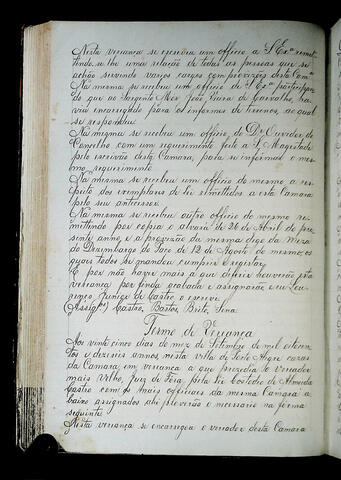 Nesta veriança se escreveu um officio a S Exª remet-
tendo-se lhe uma relação de todas as pessoas que se
achão servindo varios cargos com provizões desta Camª
Na mesma se recebeu um officio de S Exª participan-
do que ao Sargento Mor João Vieira de Carvalho, ha-
via encarregado para os informes de terrenos, ao qual
se respondeu
Na mesma se recebeu um officio do Dr Ouvidor do
Concelho com um requerimento feito a S. Magestade
pelo escrivão desta Camara, para se informar o mes-
mo requerimento
Na mesma se recebeu um officio do mesmo a res-
peito dos exemplares de lei remettidos a esta Camara
pelo seu antecessor.
Na mesma se recebeu outro officio do mesmo re-
mittindo por copia o alvará de 26 de Abril do pre-
sente anno, e a provizão da mesma digo da Meza
do Dezembargo do Paço de 13 de Agosto do mesmo, os
quais todos se mandou cumprir e registar.
E por não haver mais a que diferir houverão esta
veriança por finda acabada e assignarão e eu Lou-
renço Junior de Castro o escrevi
(Assigºˢ) Castro, Bastos, Brito, Sena
Termo de Veriança
Aos vinte cinco dias do mez de Setembro de mil oitocen-
tos e dezeseis annos nesta villa de Porto Alegre cazas
da Camara, em veriança a que prezedio o veriador
mais velho, Juiz de Fora pela lei Custodio de Almeida
Castro com os mais officiaes da mesma Camara a-
baixo assignados ahi proverão o necessario na forma
seguinte
Nesta veriança se encarregou o veriador desta Camara